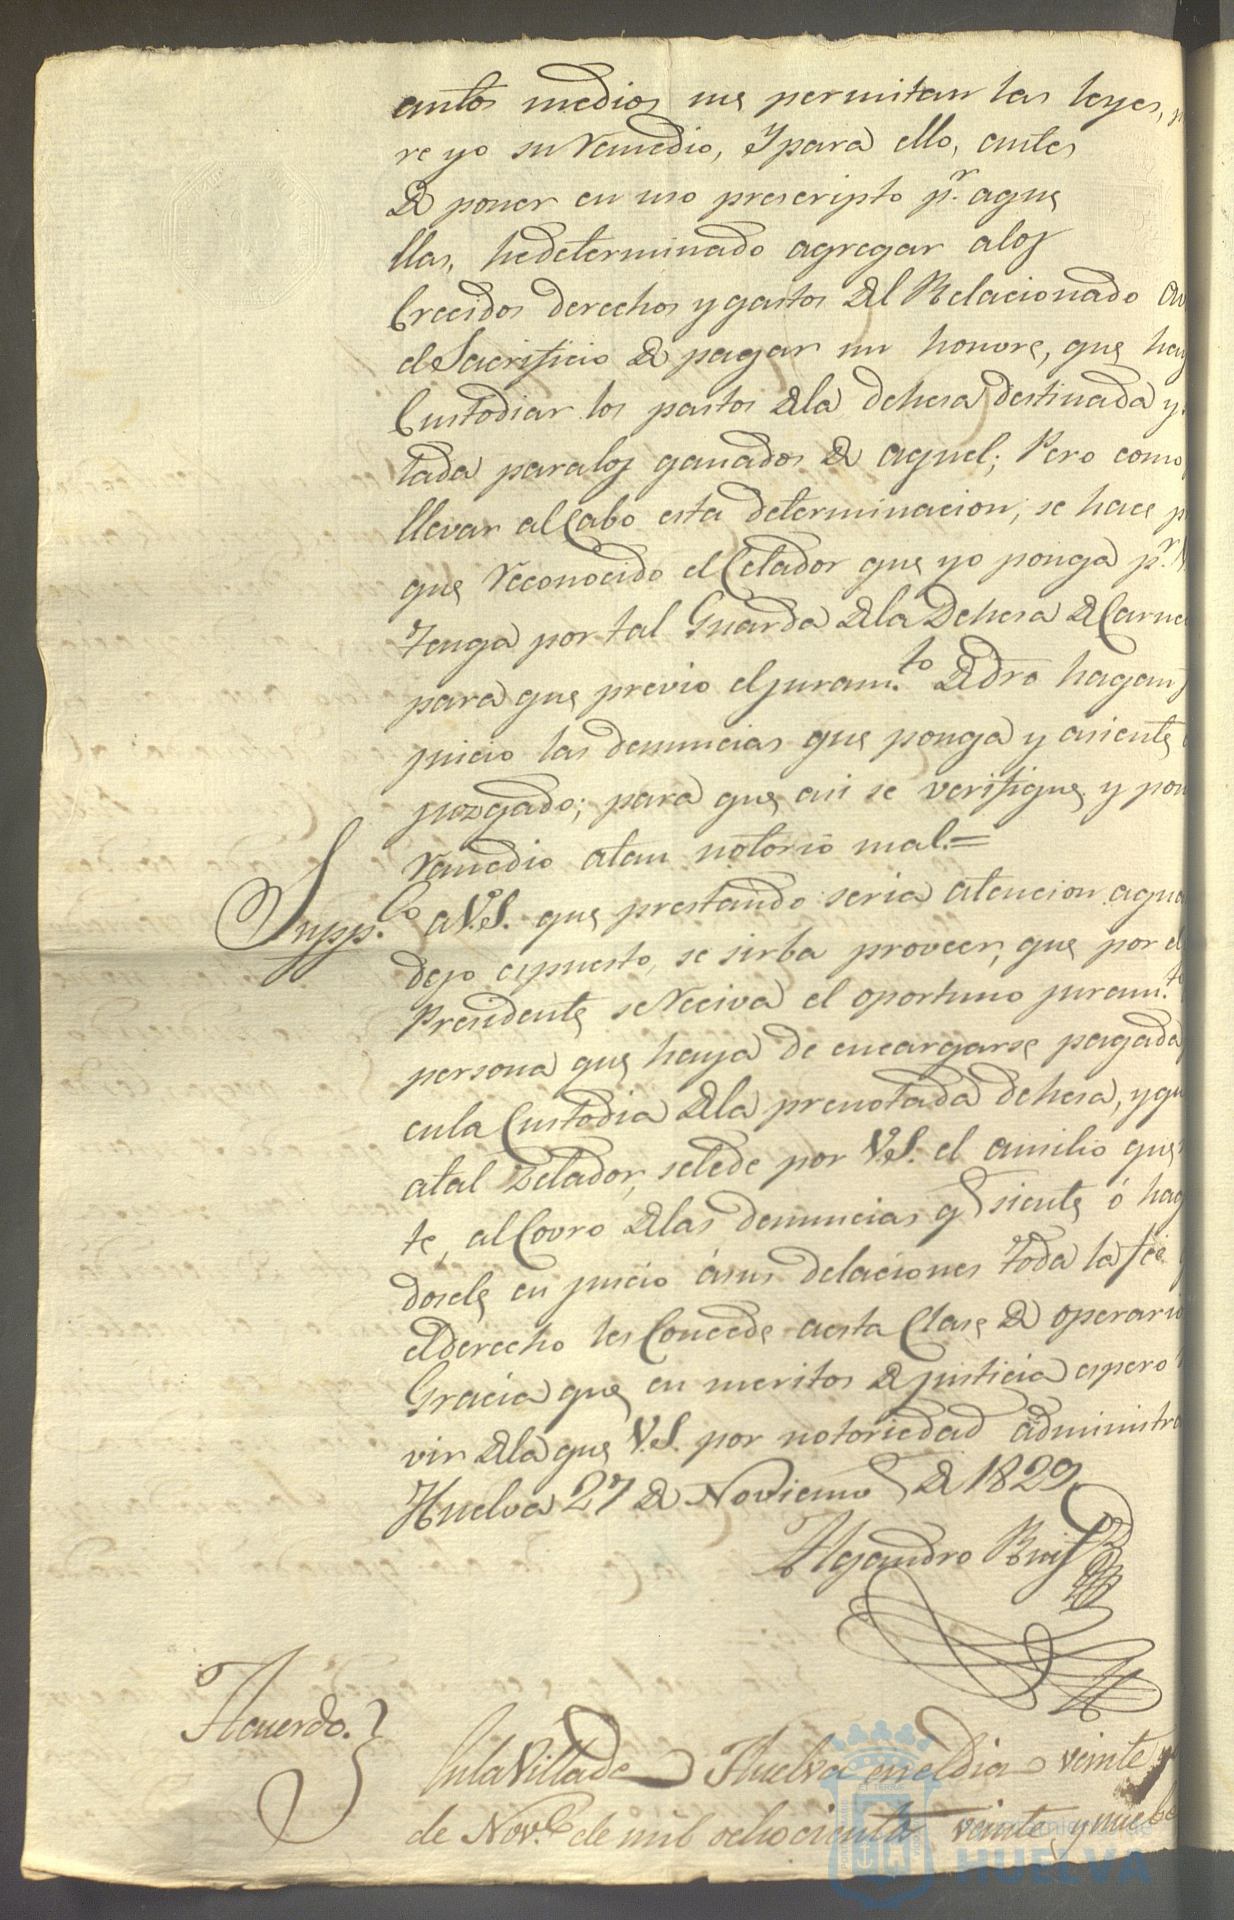 antos medios me permitan las leyes,
re yo su Remedio, Y para ello, antes
de poner en uso prescripto p.r aque
llas, hedeterminado agregar alos
Crecidos derechos y gastos del Relacionado
el Sacrificio de pagar un honvre, que hay
Custodiar los pastos dela dehesa destinada y
tada paralos ganados de aquel; Pero como
llevar al Cabo esta determinacion, se hace
que Reconocido el Celador que yo ponga p.r
Tenga por tal Guarda dela Dehesa de Carne
para que previo el juram.to de dro hagan
juicio las denuncias que ponga y asiente
juzgado; para que asi se verifique y pon
Remedio atan notorio mal.=
Supp.co a V.S. que prestando seria atencion aqua
dejo espuesto, se sirba proveer, que por el
Presidente se Reciva el oportuno juram.to
persona que haya de encargarse pagada
enla Custodia dela prenotada dehesa, y qu
atal Zelador, selede por V.S. el ausilio que
te, al Covro delas denuncias q siente ó hag
dosele en juicio ásus delaciones toda la feé
el derecho les Concede aesta Clase de operari
Gracia que en meritos de justicia espero
vir dela que V.S. por notoriedad administra
Huelva 27 de Noviemē de 1829.
Alejandro Ruiz
Acuerdo.
En la Villa de Huelva en el dia veinte
de Nov.e de mil ochocientos veinte y nuebe
Ayuntamiento de
HUELVA